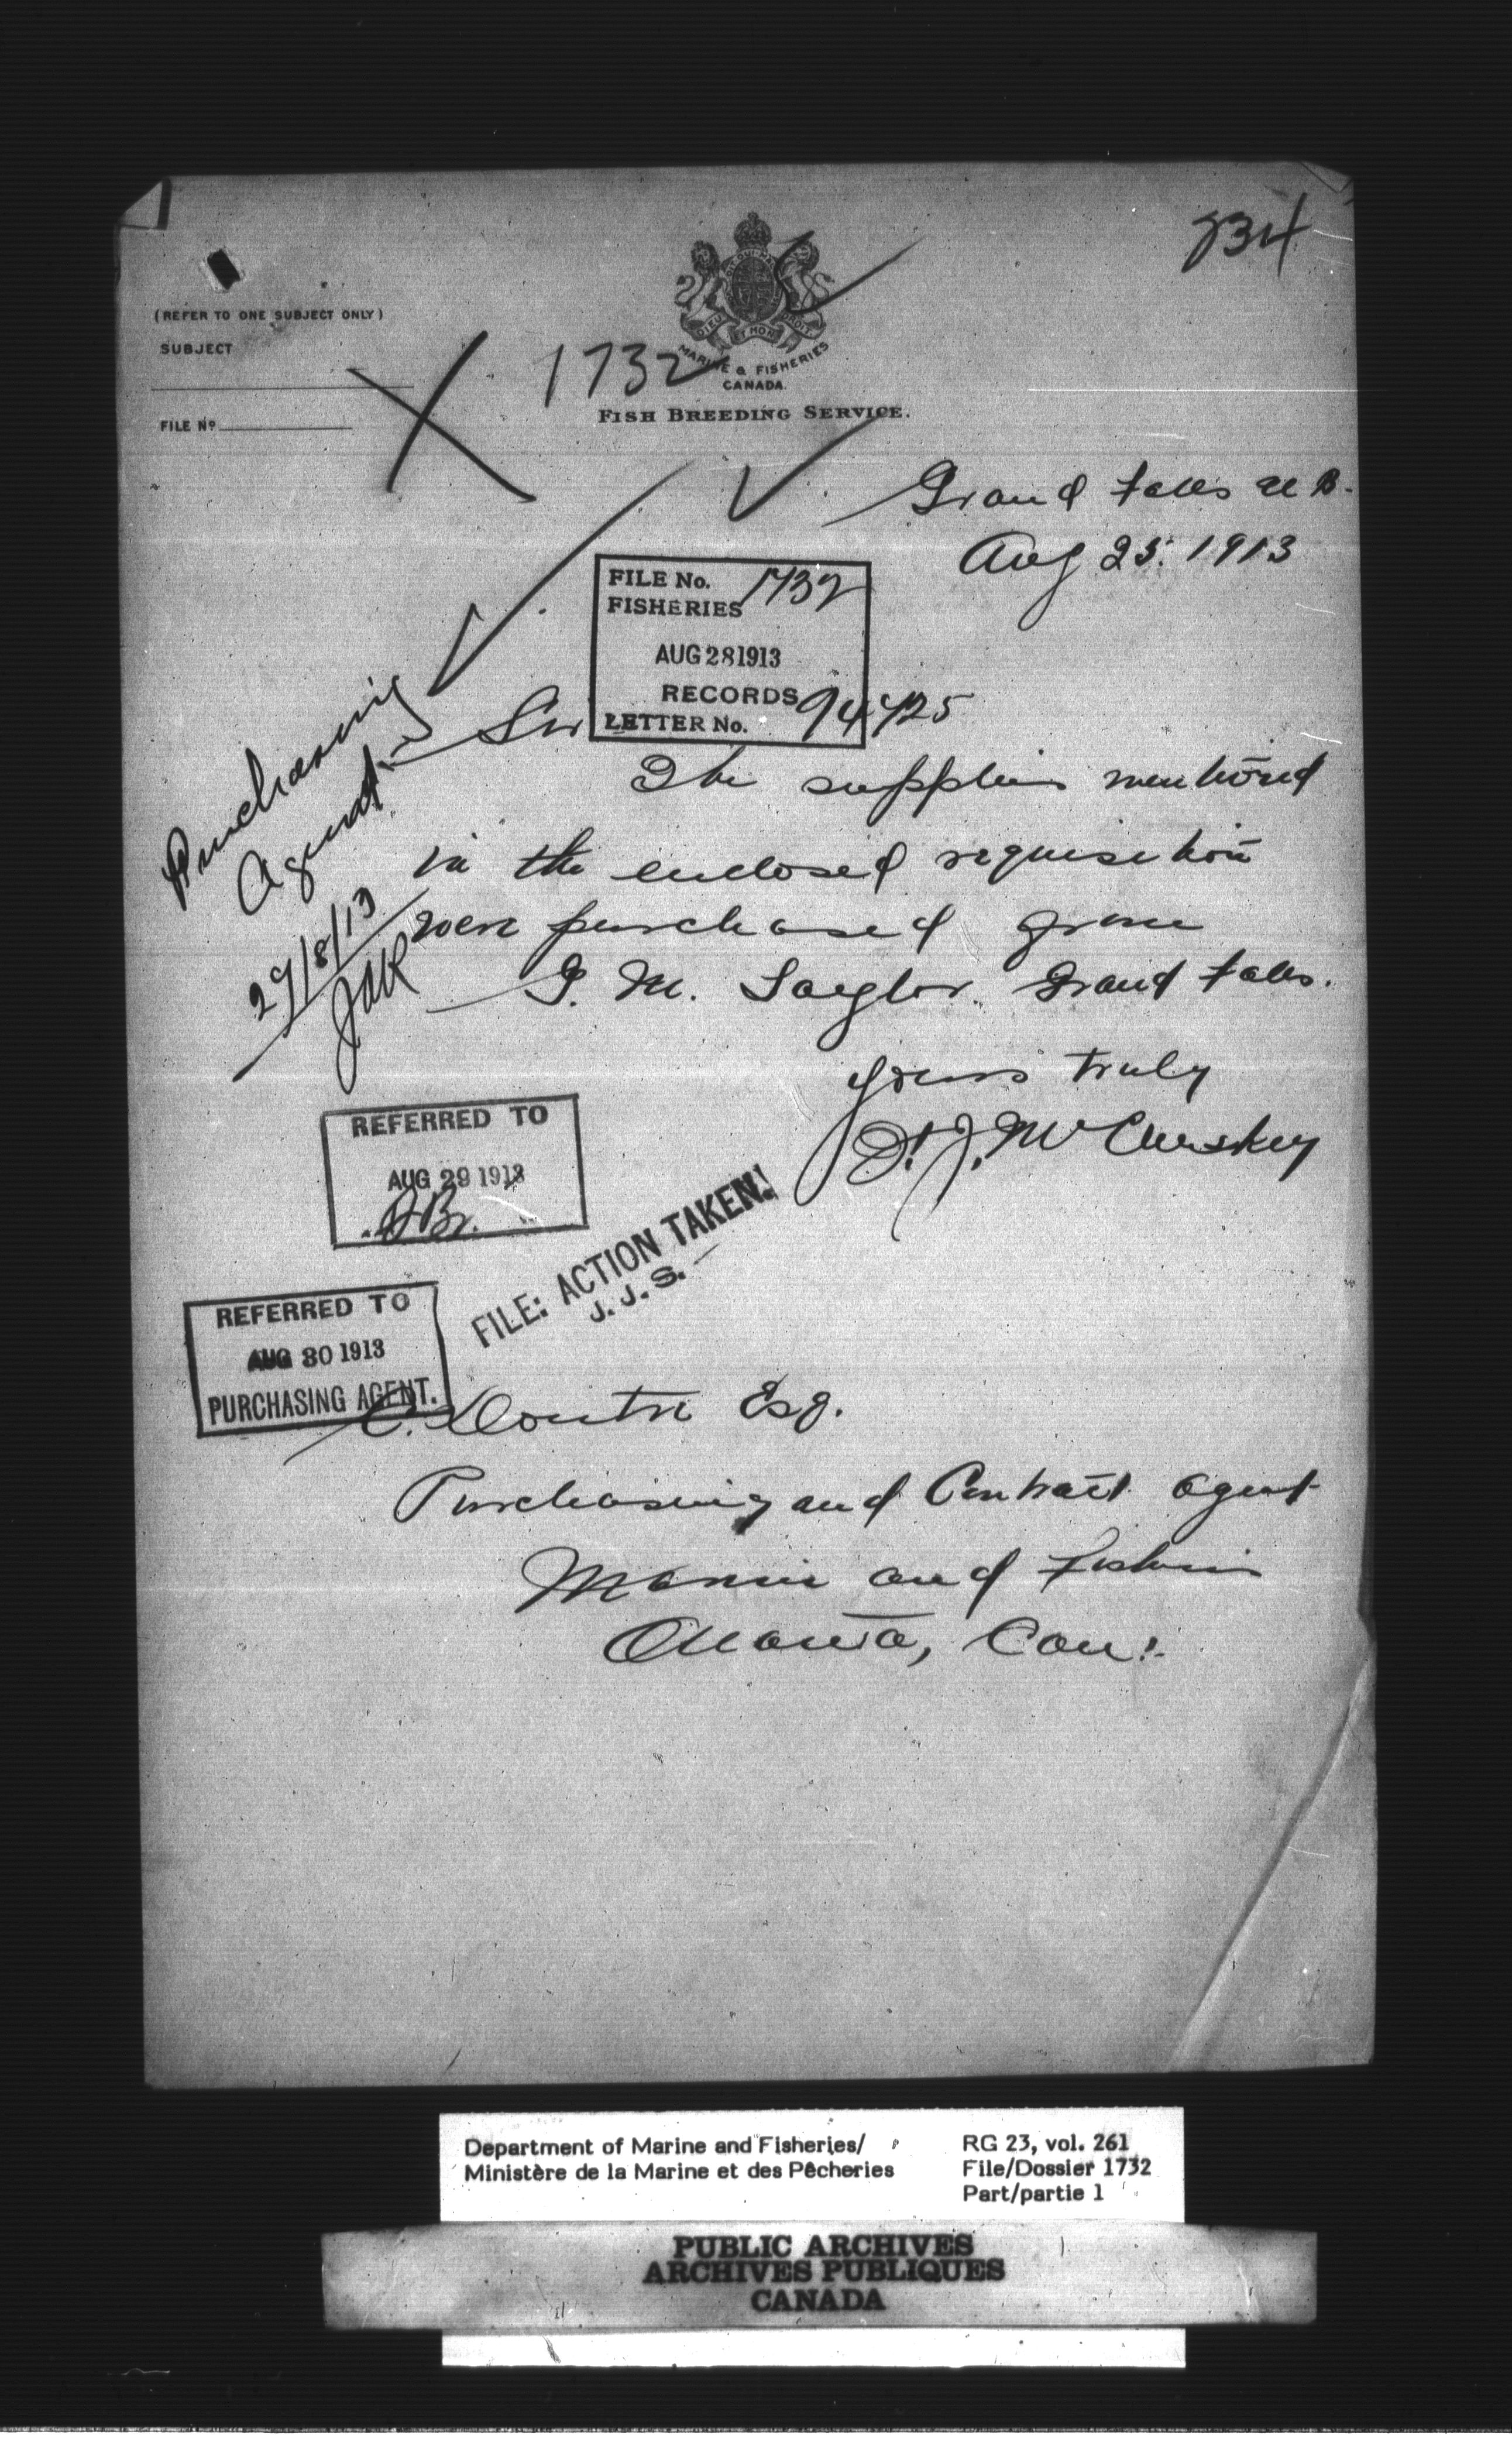 834
(REFER TO ONE SUBJECT ONLY)
SUBJECT
FILE No
1732
DIEU ET MON DROIT
MARINE & FISHERIES
CANADA.
FISH BREEDING SERVICE.
Grand Falls N B.
Aug 25. 1913
FILE No. 1732
FISHERIES
AUG 28 1913
RECORDS
LETTER No. 94425
Purchasing
Agent
29/8/13
Sir
The supplies mentioned
in the enclosed requisition
were purchased from
Taylor Grand Falls.
yours truly
McCluskey
REFERRED TO
AUG 29 1913
REFERRED TO
AUG 30 1913
PURCHASING AGENT.
FILE: ACTION TAKEN!
J. J. S.
C. Doutre Esq.
Purchasing and Contract Agent
Marine and Fisheries
Ottawa, Can.
Department of Marine and Fisheries/
Ministère de la Marine et des Pêcheries
RG 23, vol. 261
File/Dossier 1732
Part/partie 1
PUBLIC ARCHIVES
ARCHIVES PUBLIQUES
CANADA